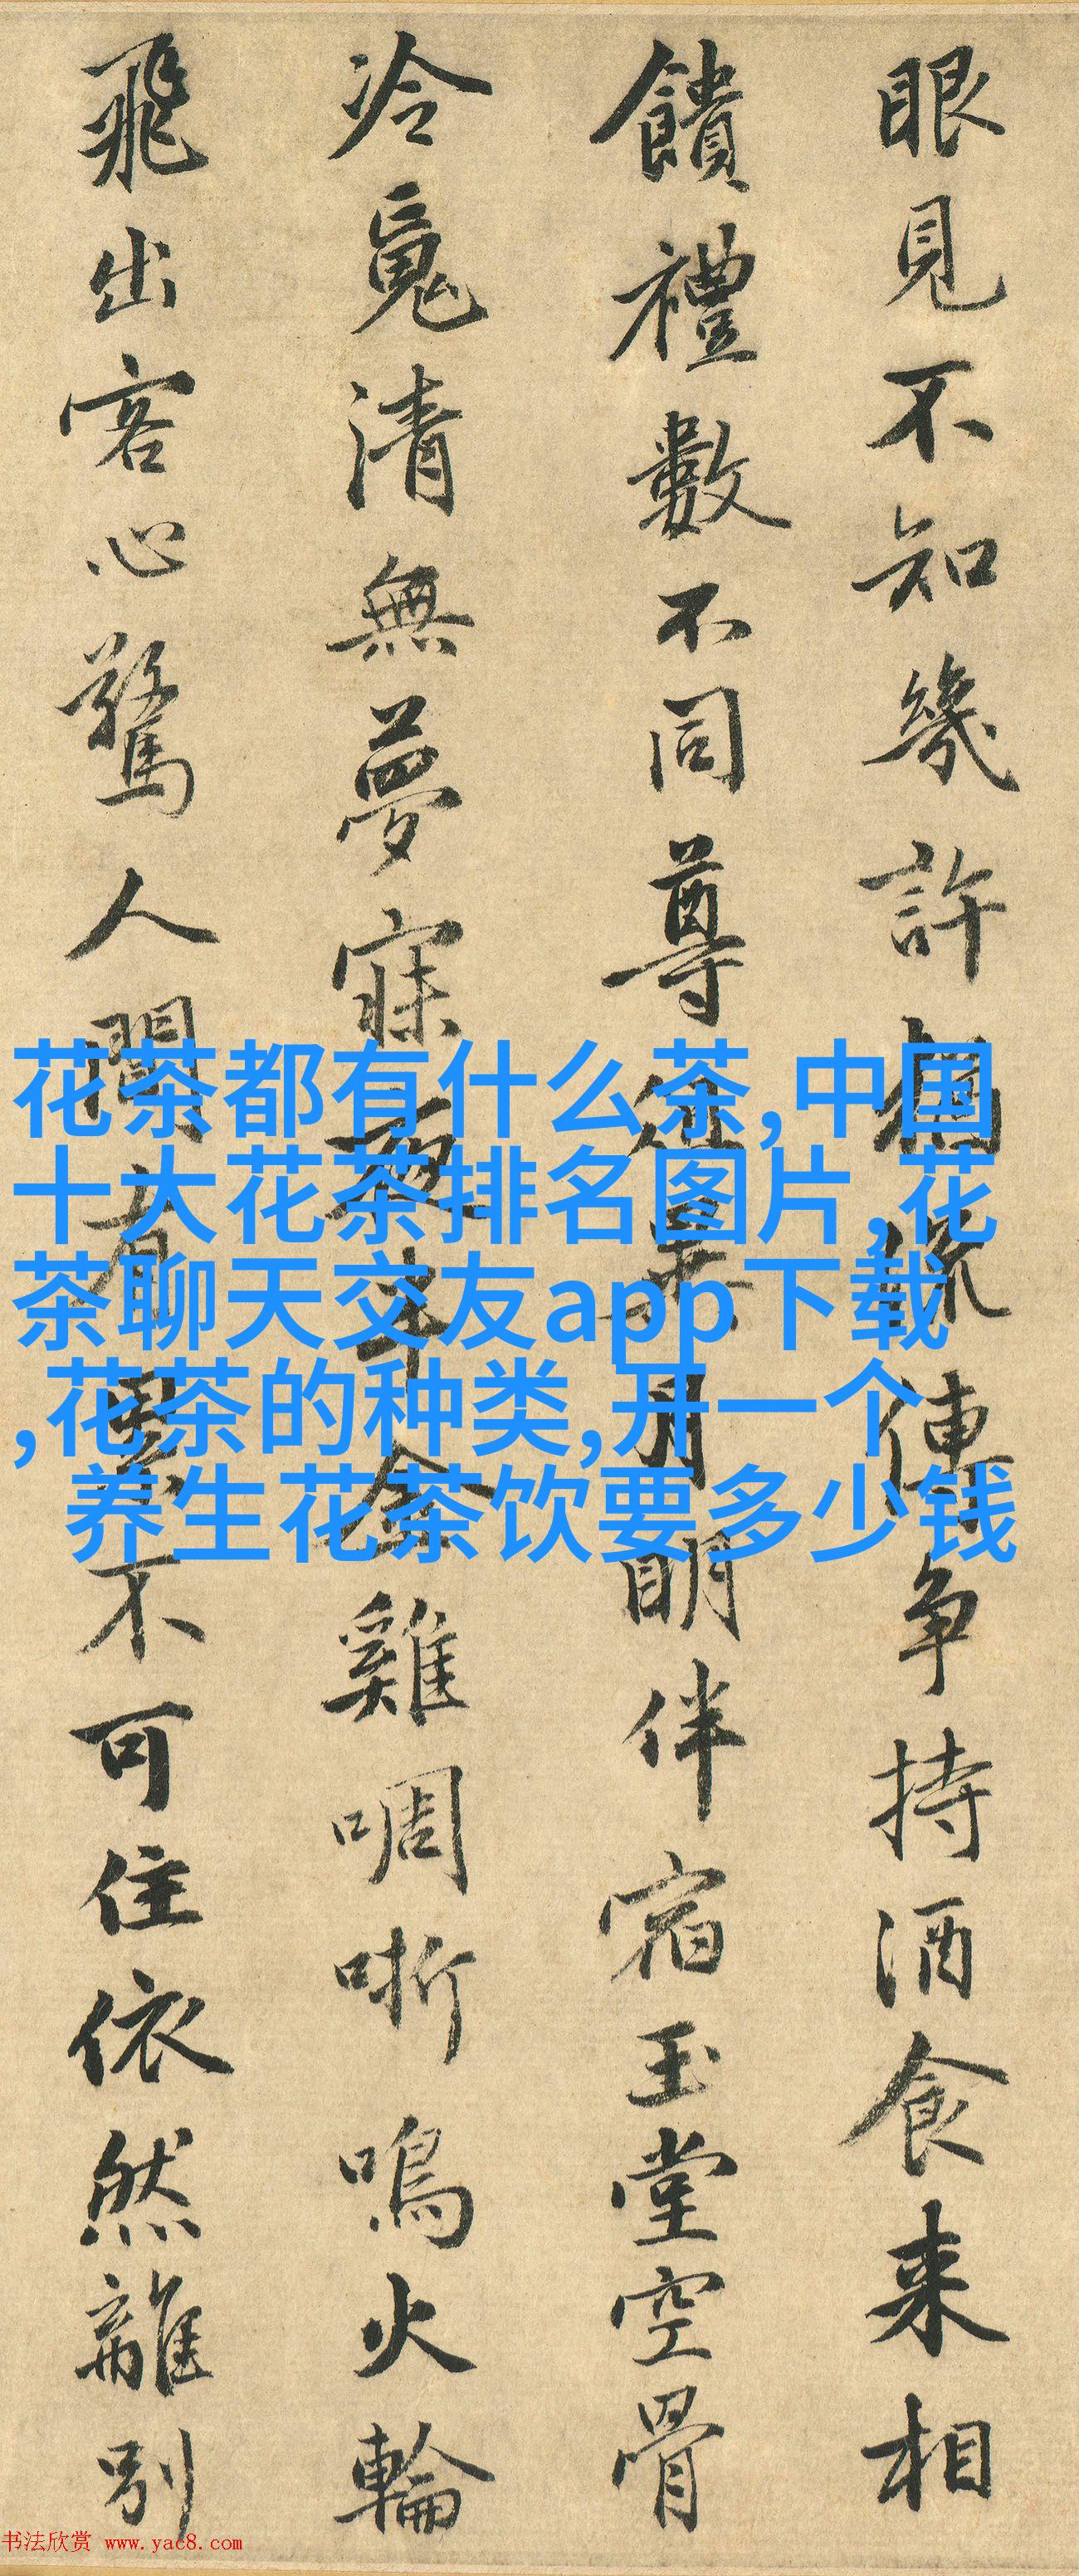 眼見不知幾許猶流傳争持酒食来相
饋禮數不同尊俎異月明伴宿玉堂空骨
冷䰟清無夢寐夜半金雞啁哳鳴火輪
飛出客心驚人間有累不可住依然離別
花茶都有什么茶,中国
十大花茶排名图片,花
茶聊天交友app下载
,花茶的种类,开一个
养生花茶饮要多少钱
书法欣赏 www.yac8.com